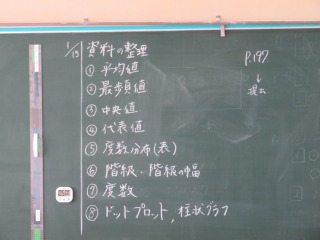 1/19 資料の整理
① 平均値
② 最頻値
③ 中央値
④ 代表値
⑤ 度数分布(表)
⑥ 階級・階級の幅
⑦ 度数
⑧ ドットプロット, 柱状グラフ
P.197
↓
提出